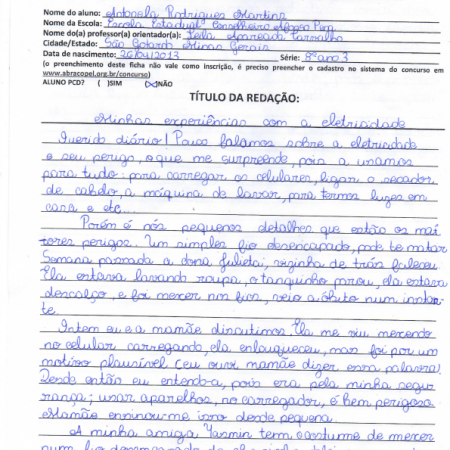 Nome do aluno: Antonela Rodrigues Martins
Nome da Escola: Escola Estadual Conselheiro Afonso Pena
Nome do(a) professor(a) orientador(a): Keila Aparecida Carvalho
Cidade/Estado: São Gotardo Minas Gerais
Data de nascimento: 26/04/2013 Série: 8º ano 3
(o preenchimento desta ficha não vale como inscrição, é preciso preencher o cadastro no sistema do concurso em
www.abracopel.org.br/concurso)
ALUNO PCD? ( )SIM (X)NÃO
TÍTULO DA REDAÇÃO:
Minhas experiências com a eletricidade
Querido diário! Pouco falamos sobre a eletricidade
e seu perigo, o que me surpreende, pois a usamos
para tudo: para carregar os celulares, ligar o secador
de cabelo, a máquina de lavar, para termos luzes em
casa e etc...
Porém é nos pequenos detalhes que estão os mai
tores perigos. Um simples fio desencapado, pode te matar
Semana passada a dona Julieta, vizinha de trás faleceu
Ela estava lavando roupa, o tanquinho parou, ela estava
descalço, e foi mexer nos fios, veio a óbito num instan-
te.
Ontem eu e a mamãe discutimos. Ela me viu mexendo
no celular carregando, ela enlouqueceu, mas foi por um
motivo plausível (eu ouvi mamãe dizer essa palavra)
Desde então eu entendo-a, pois era pela minha segu
rança; usar aparelhos, no carregador, é bem perigoso
Mamãe ensinou-me isso desde pequena.
A minha amiga Yasmin tem costume de mexer
num fio desencapado do